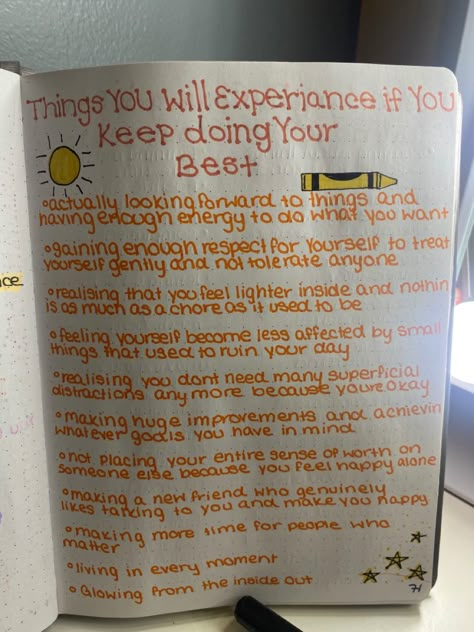 Things You Will Experiance if You
Keep doing Your
Best
•actually looking forward to things and
having enough energy to do what you want
•gaining enough respect for yourself to treat
yourself gently and not tolerate anyone
•realising that you feel lighter inside and nothin
is as much as a chore as it used to be
•feeling yourself become less affected by small
things that used to ruin your day
•realising you dont need many superficial
distractions any more because youre okay
•making huge improvements and achievin
whatever goals you have in mind
•not placing your entire sense of worth on
someone else because you feel happy alone
•making a new friend who genuinely
likes talking to you and make you happy
•making more time for people who
matter
•living in every moment
•Glowing from the inside out